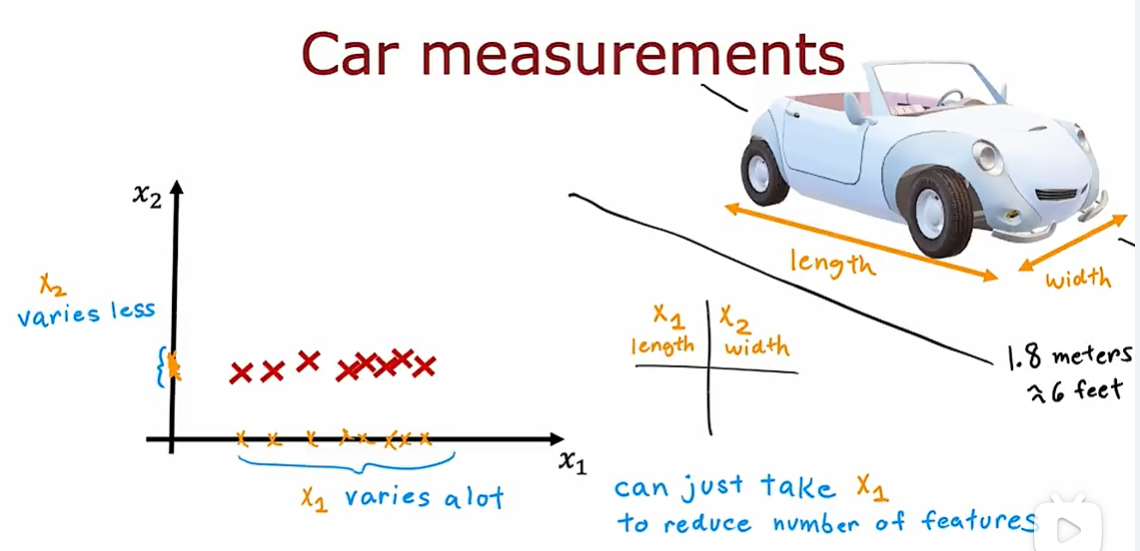 Car measurements
x₂
x₂
varies less
x₁
x₁ varies a lot
length
width
x₁ x₂
length width
1.8 meters
≈6 feet
can just take x₁
to reduce number of features